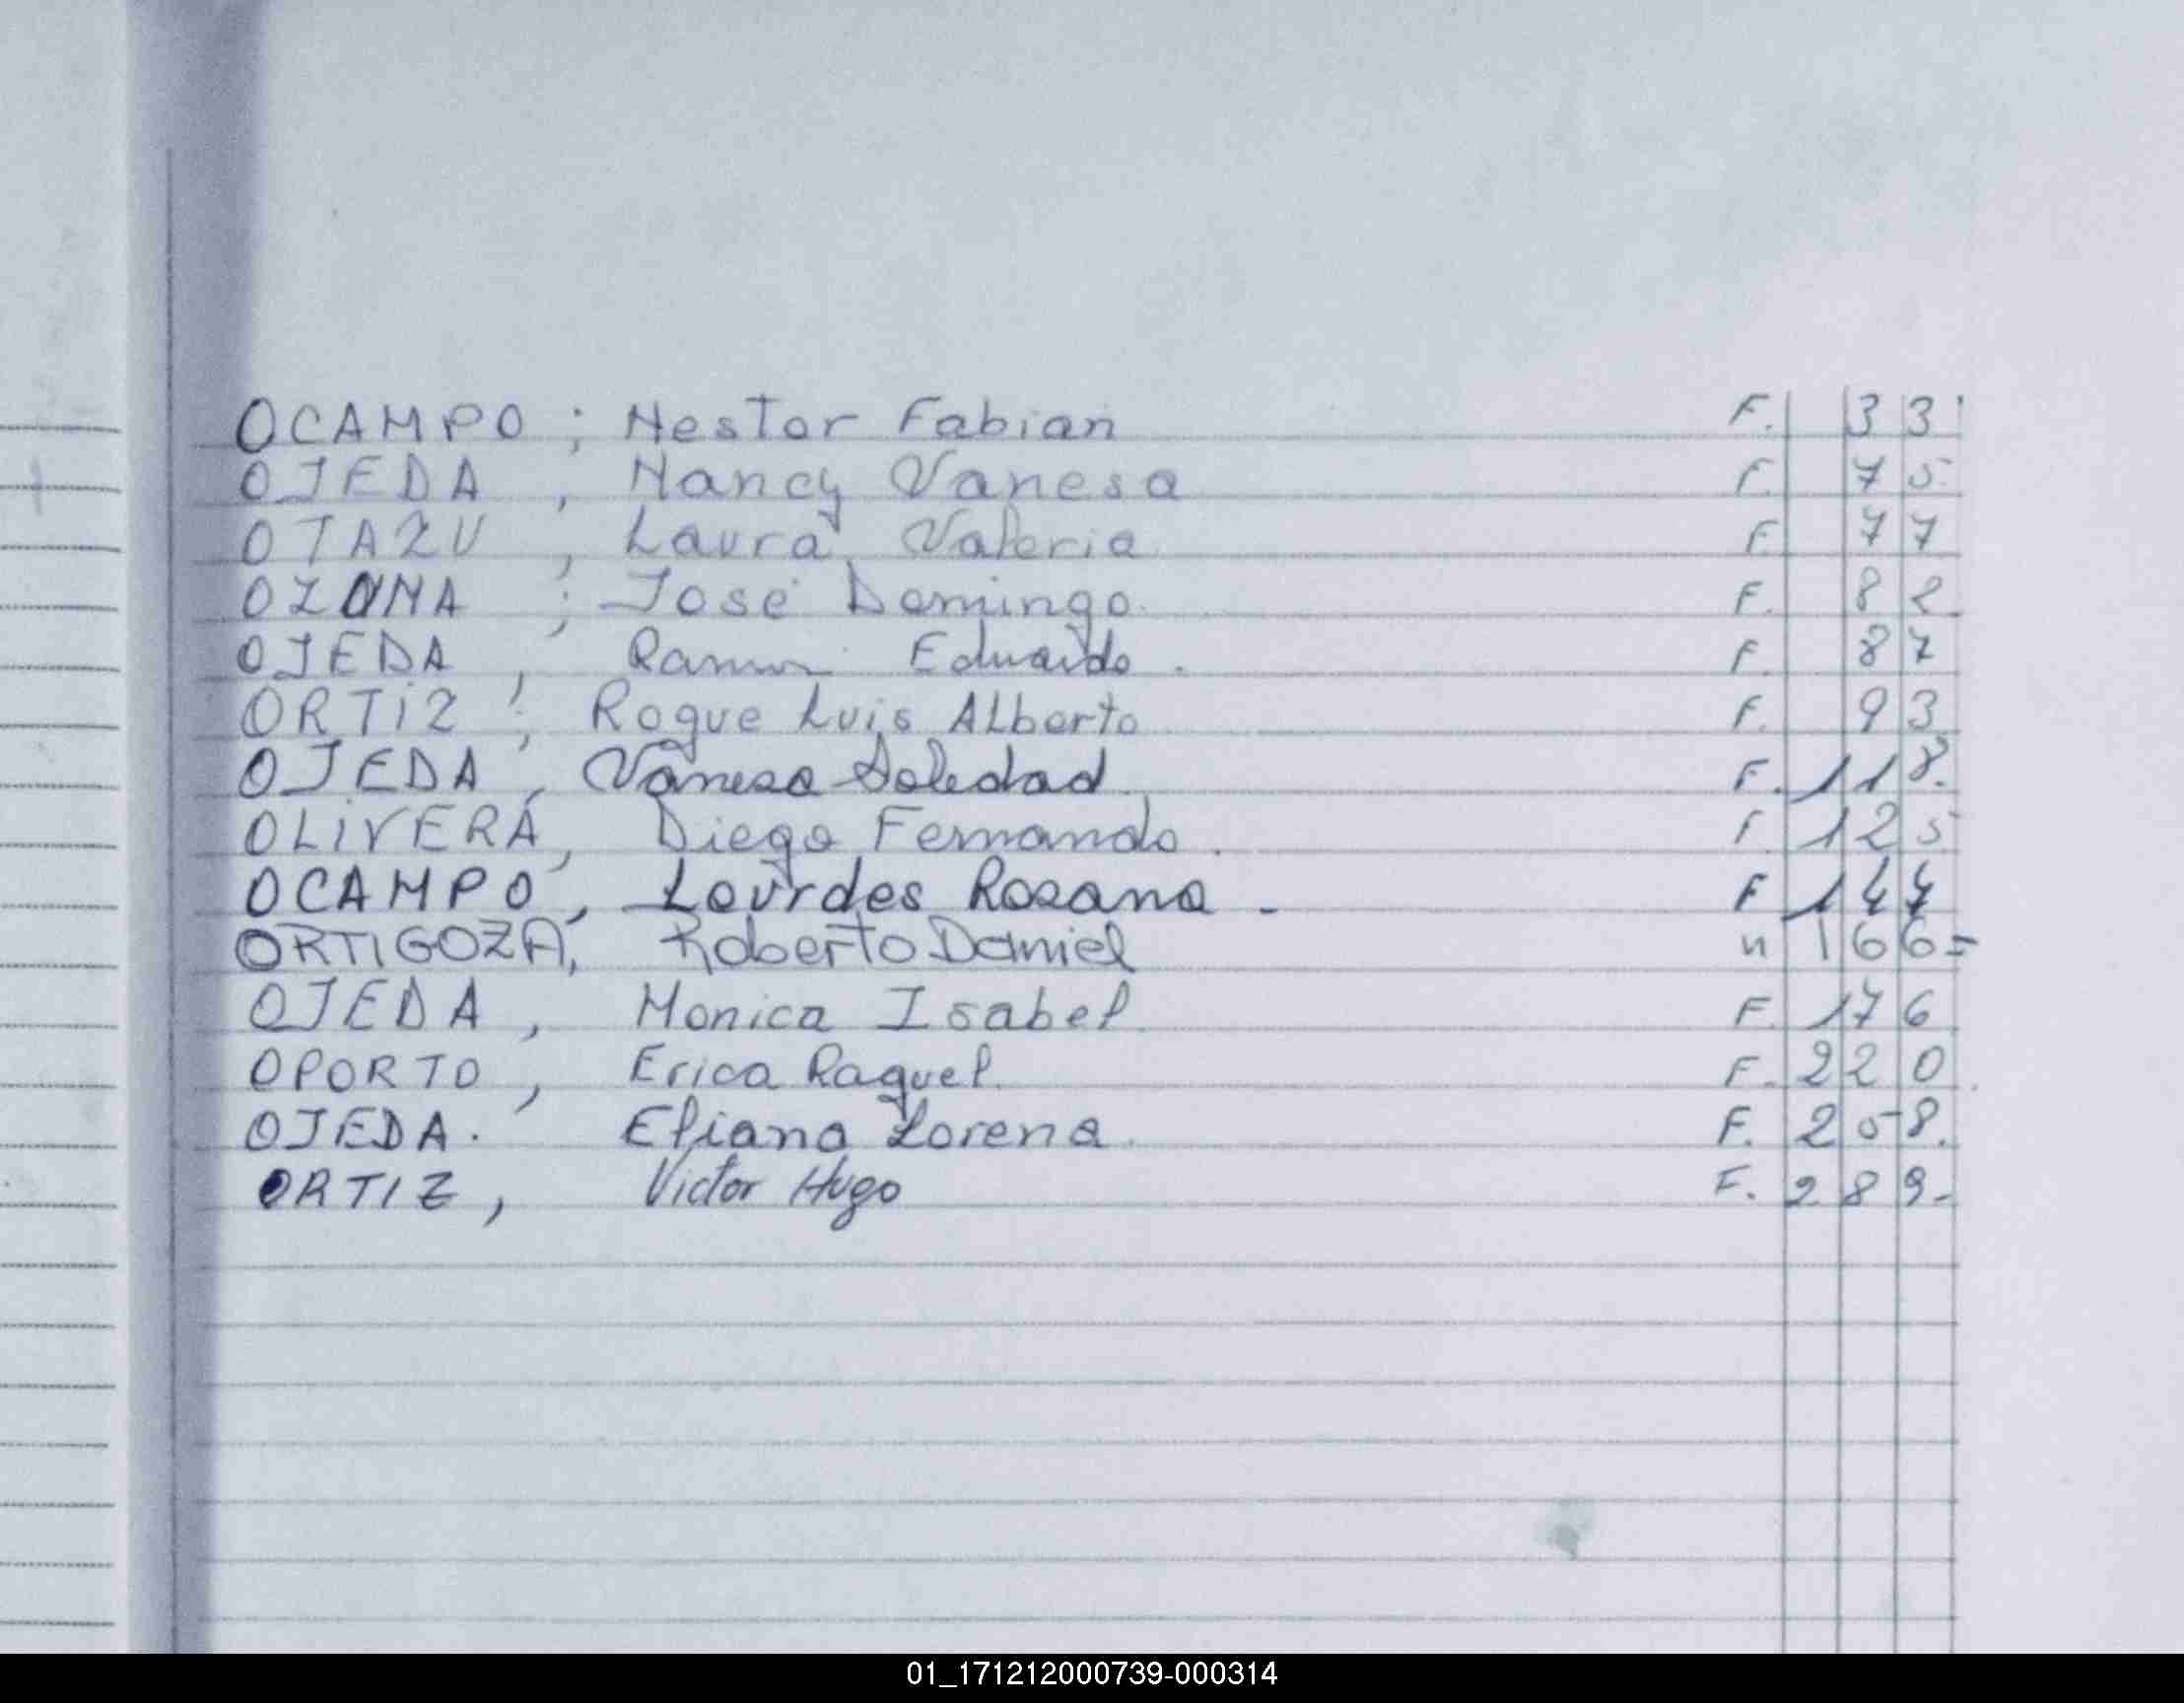 OCAMPO ; Nestor Fabian F. 33
OJEDA , Nancy Vanesa F. 75
OTAZU , Laura Valeria F. 77
OZUNA ; José Domingo. F. 82
OJEDA , Ramon Eduardo . F. 87
ORTiZ ; Roque Luis ALberto F. 93
OJEDA , Vanesa Soledad F. 118.
OLiVERA, Diego Fernando . F. 125
OCAMPO , Lourdes Rosana - F
ORTIGOZA, Roberto Daniel " 166=
OJEDA , Monica Isabel F. 176
OPORTO , Erica Raquel. F. 220
OJEDA. Eliana Lorena. F. 258.
ORTIZ , Victor Hugo F. 289-
01_171212000739-000314